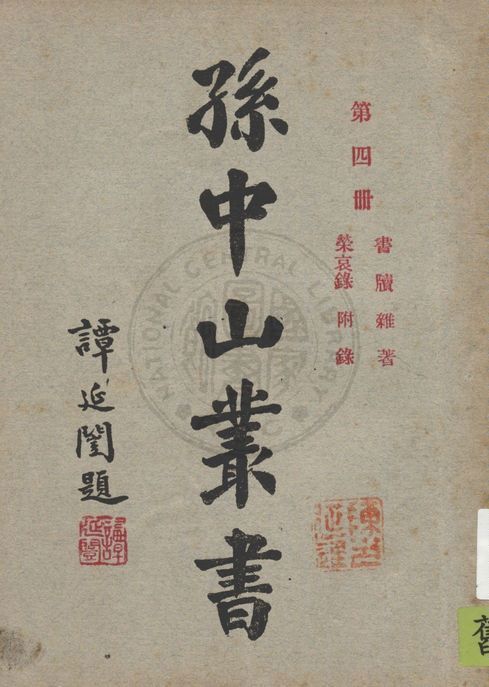 第四冊
書牘雜著
榮哀錄 附錄
孫中山叢書
譚延闓題
譚延闓
NATIONAL CENTRAL LIBRARY
舊